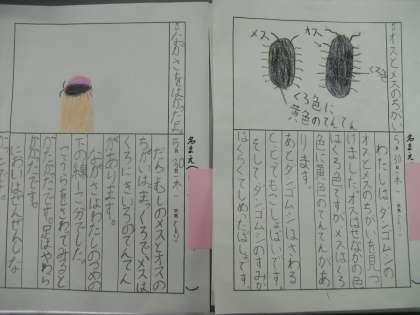 オスとメスのちがい
5月30日(木)
名まえ
メス
オス
くろ色
くろ色に
黄色のてんてん
わたしは、ダンゴムシの
オスとメスのちがいを見つ
けました。オスはせなかの色
はくろ色ですが、メスはくろ
色に黄色のてんてんがあ
ります。
あとダンゴムシはさわる
ととてもこしょばいです。
そしてダンゴムシのすみか
はくらくてしめったばしょです。
ながさをはかったら
5月30日(木)
名まえ
だんごむしのメスとオスの
ちがいは、まっくろで、メスは
くろにきいろのてんてん
があります。
ながさはわたしのつめの
下の線と一こ分でした。
こうらをさわってみると
かたかったです。足はやわら
かかったです。
においはぜんぜんしな
かったです。